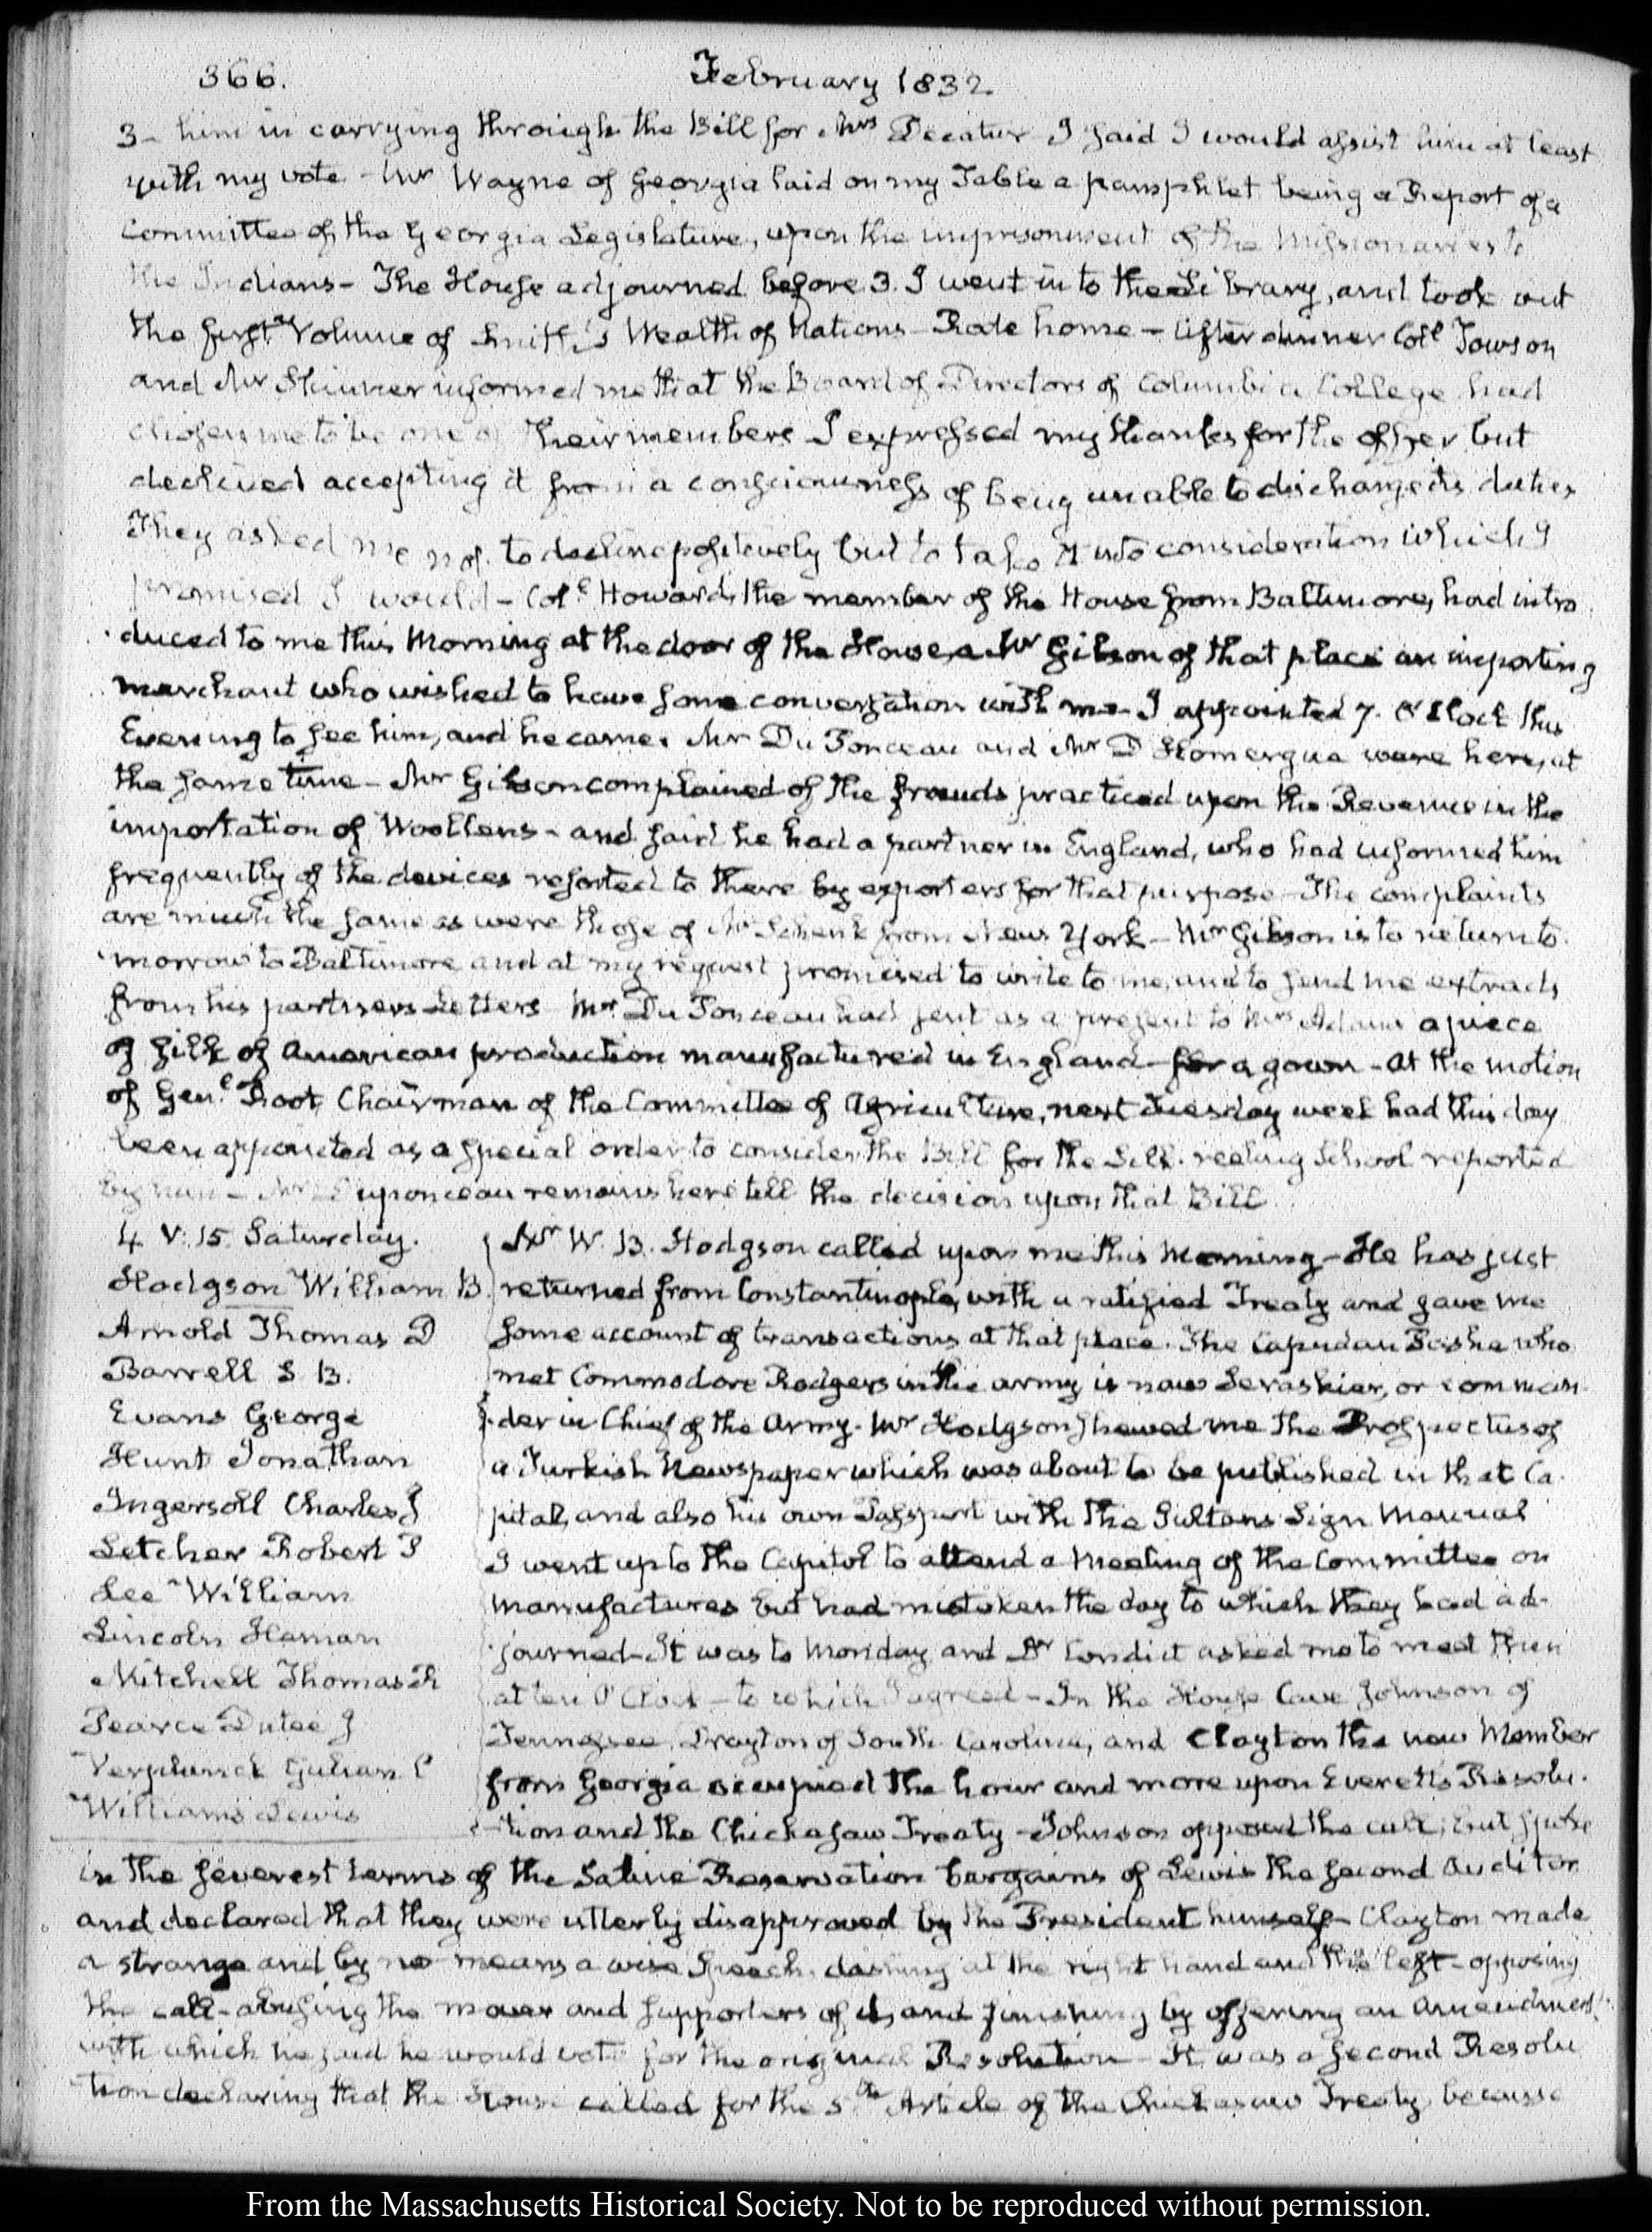 366.
February 1832.
3- him in carrying through the Bill for Mrs Decatur I said I would assist him at least
with my vote - Mr Wayne of Georgia laid on my Table a pamphlet being a Report of a
Committee of the Georgia Legislature, upon the imprisonment of the Missionaries to
the Indians - The House adjourned before 3. I went in to the Library, and took out
the first Volume of Smith's Wealth of Nations - Rode home - After dinner Coll Towson
and Mr Skinner informed me that the Board of Directors of Columbia College had
chosen me to be one of their members I expressed my thanks for the offer but
declined accepting it from a consciousness of being unable to discharge its duties
They asked me not to decline positively but to take it into consideration which I
promised I would - Coll Howard, the member of the House from Baltimore, had intro
duced to me this Morning at the door of the House, a Mr Gibson of that place an importing
merchant who wished to have some conversation with me - I appointed 7. O'Clock this
Evening to see him, and he came. Mr Du Ponceau and Mr D'Homergue were here, at
the same time - Mr Gibson complained of the frauds practiced upon the Revenue in the
importation of Woollens - and said he had a partner in England, who had informed him
frequently of the devices resorted to there by exporters for that purpose - The complaints
are much the same as were those of Mr Schenk from New York - Mr Gibson is to return to
morrow to Baltimore and at my request promised to write to me, and to send me extracts
from his partners Letters Mr Du Ponceau had sent as a present to Mrs Adams a piece
of silk of American production manufactured in England - for a gown - At the motion
of Genl. Root, Chairman of the Committee of Agriculture, next Tuesday week had this day
been appointed as a special order to consider the Bill for the Silk-reeling School reported
by him - Mr Duponceau remains here till the decision upon that Bill
4 V. 15. Saturday.
Hodgson William B.
Arnold Thomas D
Barrell S B.
Evans George
Hunt Jonathan
Ingersoll Charles J
Letcher Robert P
Lee William
Lincoln Heman
Mitchell Thomas R
Pearce Dutee J
Verplanck Gulian C
Williams Lewis
Mr W. B. Hodgson called upon me this Morning - He has just
returned from Constantinople, with a ratified Treaty and gave me
some account of transactions at that place. The Capudan Pasha who
met Commodore Rodgers in the army is now Seraskier, or comman
der in Chief of the Army. Mr Hodgson shewed me the Prospectus of
a Turkish Newspaper which was about to be published in that Ca-
pital, and also his own Passport with the Sultans Sign Manual
I went up to the Capitol to attend a Meeting of the Committee on
Manufactures but had mistaken the day to which they had ad-
journed - It was to Monday and Dr Condict asked me to meet then
at ten O'Clock - to which I agreed - In the House Cave Johnson of
Tennessee, Drayton of South Carolina, and Clayton the new Member
from Georgia occupied the hour and more upon Everett's Resolu-
tion and the Chickasaw Treaty - Johnson opposed the call, but spoke
in the severest terms of the Saline Reservation bargains of Lewis the second Auditor
and declared that they were utterly disapproved by the President himself - Clayton made
a strange and by no means a wise Speech, dashing at the right hand and the left - opposing
the call - abusing the mover and supporters of it, and finishing by offering an Amendment
with which he said he would vote for the original Resolution - It was a second Resolu
tion declaring that the House called for the 5th Article of the Chickasaw Treaty, because
From the Massachusetts Historical Society. Not to be reproduced without permission.